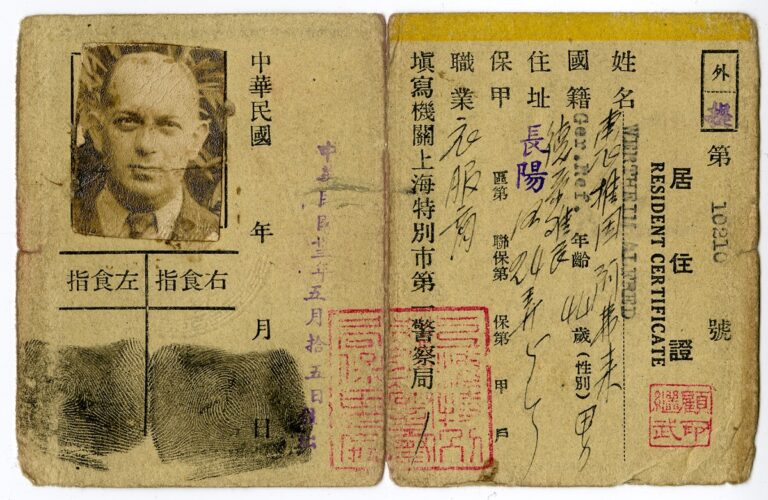 外
第 10210 號
居住證
RESIDENT CERTIFICATE
WERTHEIM ALFRED
姓名
國籍 Ger.Ref. 年齡 44 歲 (性別) 男
住址 長陽 24弄
保甲 區第 聯保第 保第 甲 戶
職業 衣服商
填寫機關上海特別市第一警察局
顧繼武印
中華民國 年 月 日
中華民國卅三年五月拾五日
右食指
左食指